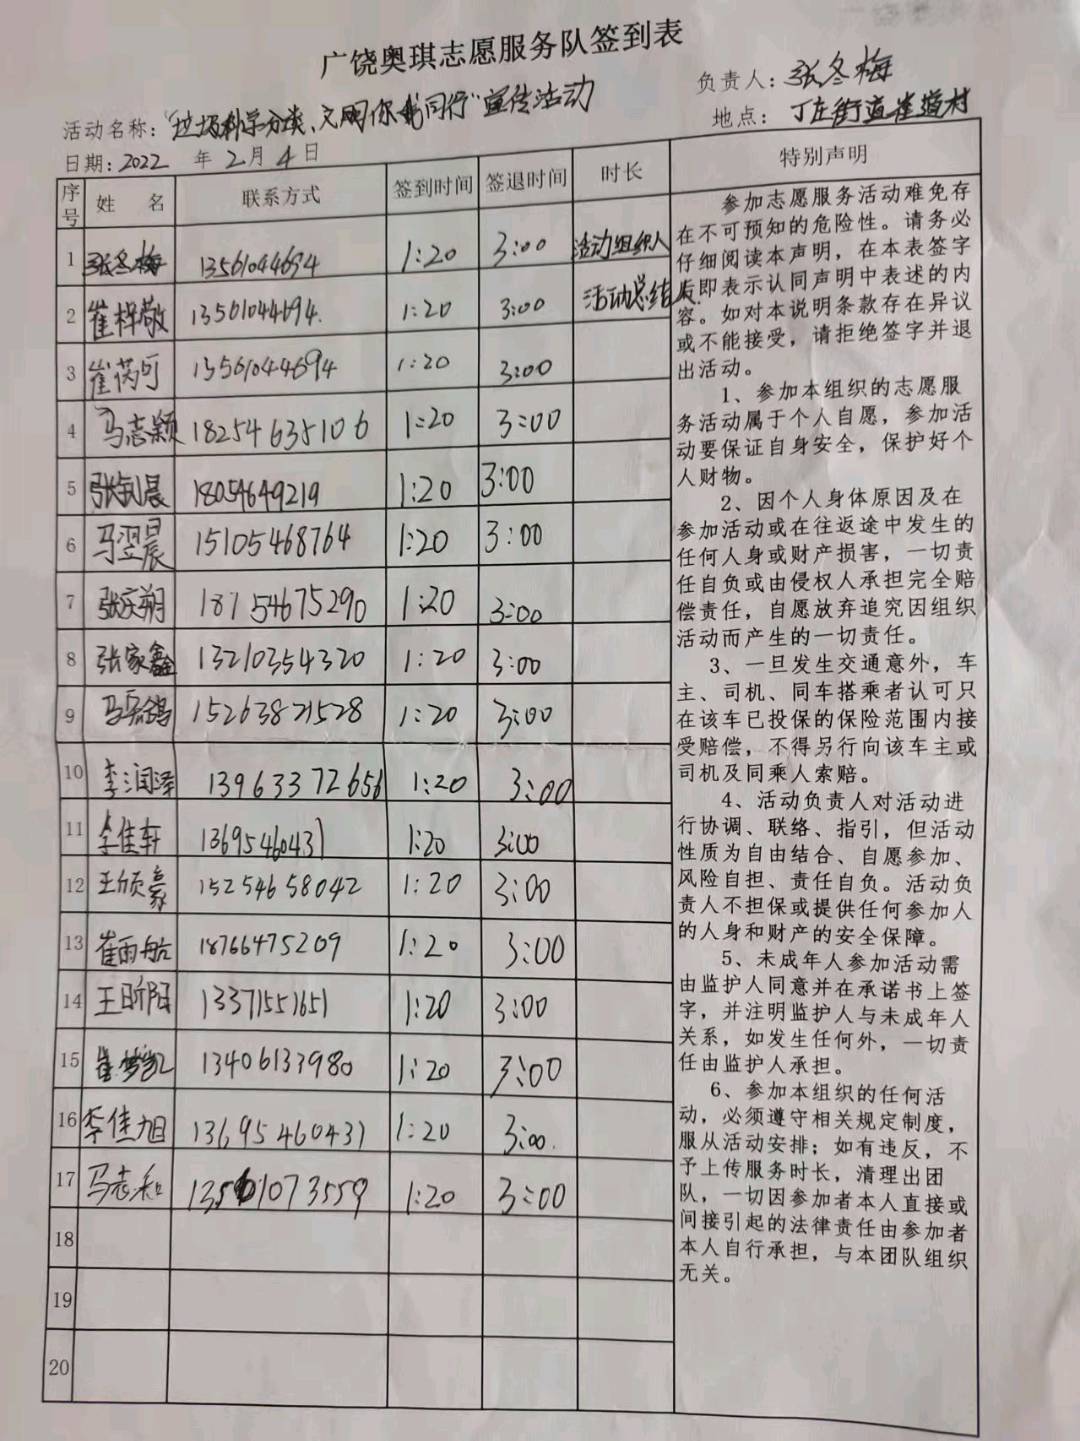 广饶奥琪志愿服务队签到表
负责人：张冬梅
活动名称："垃圾科学分类、文明你我同行"宣传活动
地点：丁庄街道崔道村
日期：2022年2月4日
序号 姓名 联系方式 签到时间 签退时间 时长 特别声明
1 张冬梅 13561044694 1:20 3:00 活动组织人
2 崔梓敬 13561044694. 1:20 3:00 活动总结人
3 崔芮可 13561044694 1:20 3:00
4 马志颖 18254635106 1:20 3:00
5 张钊晨 18054649219 1:20 3:00
6 马翌晨 15105468764 1:20 3:00
7 张庆朔 18154675290 1:20 3:00
8 张家鑫 13210354320 1:20 3:00
9 马 15263821528 1:20 3:00
10 李润泽 13963372656 1:20 3:00
11 李佳轩 13695460431 1:20 3:00
12 王颀豪 15254658042 1:20 3:00
13 崔雨航 18766475209 1:20 3:00
14 王昕阳 13371551651 1:20 3:00
15 崔梦凯 13406133980 1:20 3:00
16 李佳旭 13695460431 1:20 3:00.
17 马志和 13561073559 1:20 3:00
18
19
20
参加志愿服务活动难免存
在不可预知的危险性。请务必
仔细阅读本声明，在本表签字
后即表示认同声明中表述的内
容。如对本说明条款存在异议
或不能接受，请拒绝签字并退
出活动。
1、参加本组织的志愿服
务活动属于个人自愿，参加活
动要保证自身安全，保护好个
人财物。
2、因个人身体原因及在
参加活动或在往返途中发生的
任何人身或财产损害，一切责
任自负或由侵权人承担完全赔
偿责任，自愿放弃追究因组织
活动而产生的一切责任。
3、一旦发生交通意外，车
主、司机、同车搭乘者认可只
在该车已投保的保险范围内接
受赔偿，不得另行向该车主或
司机及同乘人索赔。
4、活动负责人对活动进
行协调、联络、指引，但活动
性质为自由结合、自愿参加、
风险自担、责任自负。活动负
责人不担保或提供任何参加人
的人身和财产的安全保障。
5、未成年人参加活动需
由监护人同意并在承诺书上签
字，并注明监护人与未成年人
关系，如发生任何外，一切责
任由监护人承担。
6、参加本组织的任何活
动，必须遵守相关规定制度，
服从活动安排；如有违反，不
予上传服务时长，清理出团
队，一切因参加者本人直接或
间接引起的法律责任由参加者
本人自行承担，与本团队组织
无关。